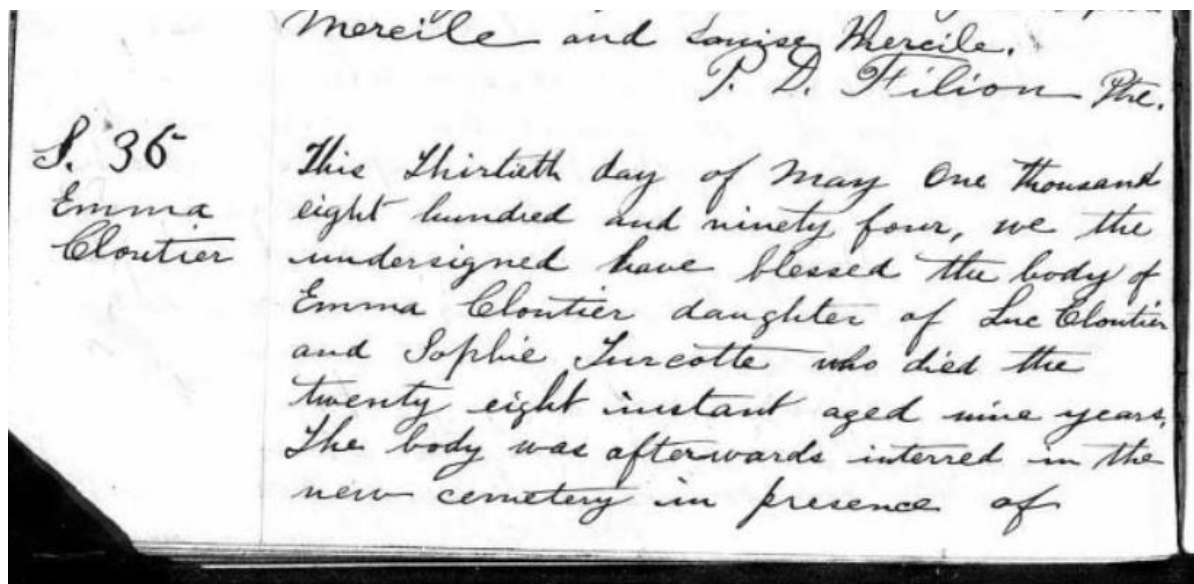 Mercile and Louise Mercile.
P. D. Filion Ptre.
S. 36
Emma
Cloutier
This Thirtieth day of May One thousand
eight hundred and ninety four, we the
undersigned have blessed the body of
Emma Cloutier daughter of Luc Cloutier
and Sophie Turcotte who died the
twenty eight instant aged nine years.
The body was afterwards interred in the
new cemetery in presence of